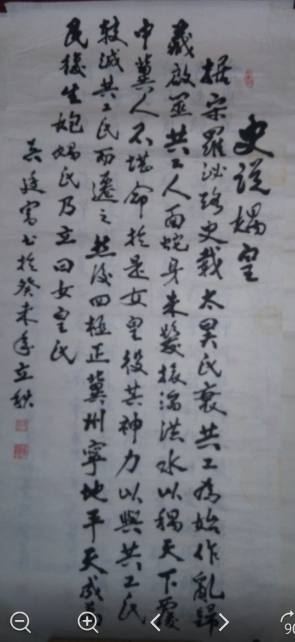 史说媧皇
据宋羅泌路史載太昊氏衰共工為始作亂歸
藏啟筮共工人面蛇身朱髮振滔洪水以禍天下覆
中冀人不堪命於是女皇役其神力以與共工氏
較滅共工氏而遷之然後四極正冀州寧地平天成
民復生炮媧氏乃立曰女皇氏
廷寫書於癸未年立秋
90